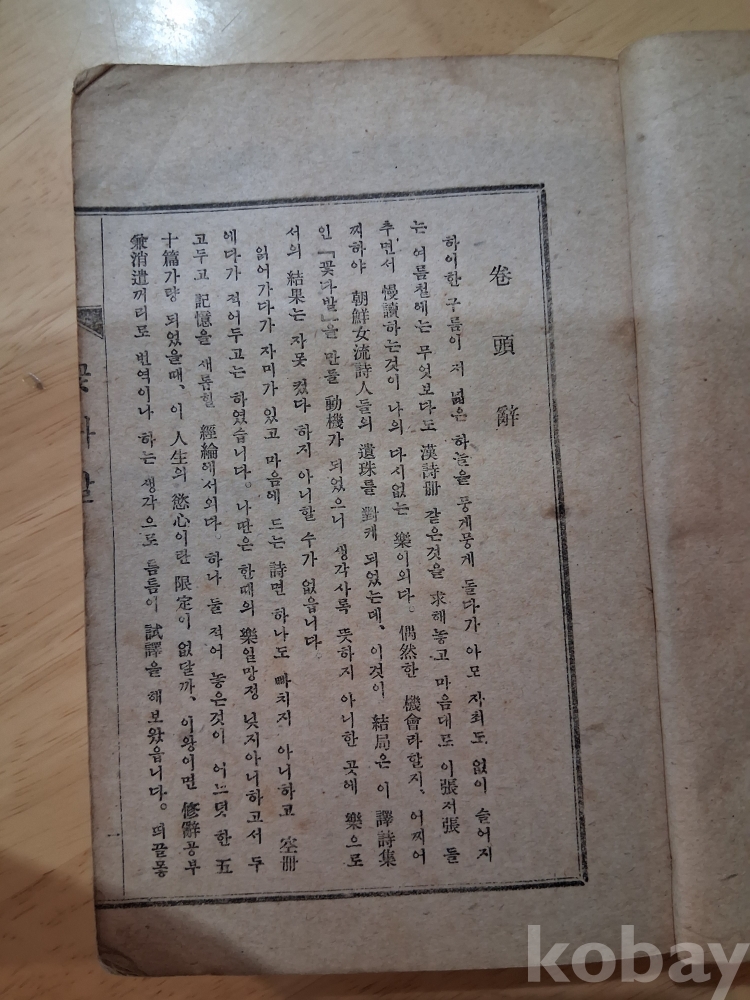 卷頭辭
하이한 구름이 저 넓은 하늘을 뭉게뭉게 돌다가 아모 자최도 없이 슬어지
는 여름철에는 무엇보다도 漢詩册 같은것을 求해놓고 마음대로 이張저張 들
추면서 慢讀하는것이 나의 다시없는 樂이외다. 偶然한 機會라할지, 어찌어
찌하야 朝鮮女流詩人들의 遺珠를 對케 되었는데, 이것이 結局은 이 譯詩集
인 『꽃다발』을 만들 動機가 되었으니 생각사록 뜻하지 아니한 곳에 樂으로
서의 結果는 자못 컸다 하지 아니할 수가 없읍니다
읽어가다가 자미가 있고 마음에 드는 詩면 하나도 빠치지 아니하고 空册
에다가 적어두고는 하였습니다. 나딴은 한때의 樂일망정 낮지아니하고서 두
고두고 記憶을 새롭힐 經綸에서외다. 하나 둘 적어 놓은것이 어느덧 한 五
十篇가량 되었을때, 이 人生의 慾心이란 限定이 없달까, 이왕이면 修辭공부
兼消遣꺼리로 번역이나 하는 생각으로 틈틈이 試譯을 해보왔읍니다. 띄끌몿
꽃다발
一
kobay